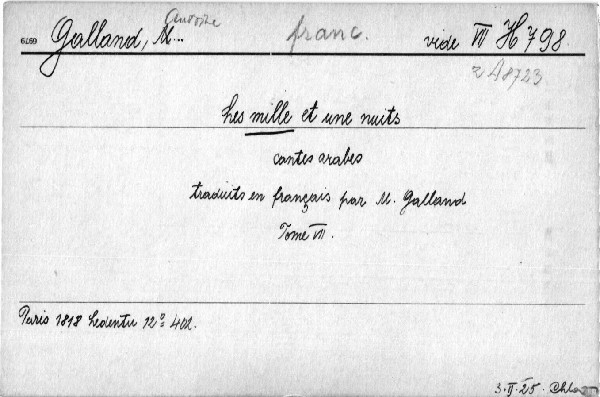 6459 Galland, M... Antoine franc. vide VII H 798.
2 A 8723
Les mille et une nuits
contes arabes
traduits en français par M. Galland
Tome VII.
Paris 1818 Ledentu 12º 402.
3. II. 25.